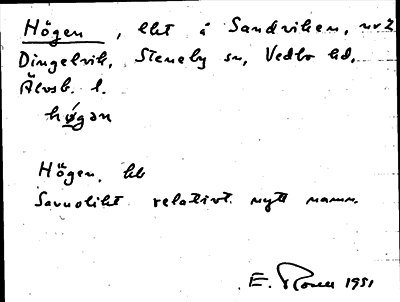 Högen, lht å Sandviken, nr 2
Dingelvik, Steneby sn, Vedbo hd,
Älvsb. l.
høgan
Högen, hb
Sannolikt relativt nytt namn.
E. Rosell 1951